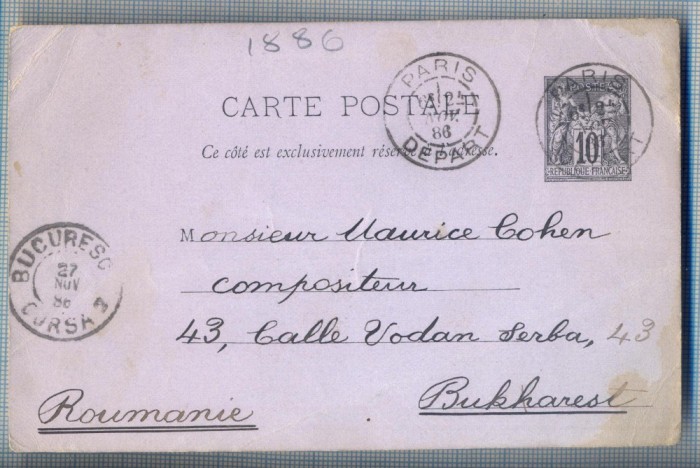 1886
CARTE POSTALE
Ce côté est exclusivement réservé à l'adresse.
PARIS
86
DEPART
PARIS
10
REPUBLIQUE FRANÇAISE
Monsieur Maurice Cohen
compositeur
43, Calle Vodan Serba, 43
Bukharest
Roumanie
BUCURESC
27
NOV
86
CURSA 3